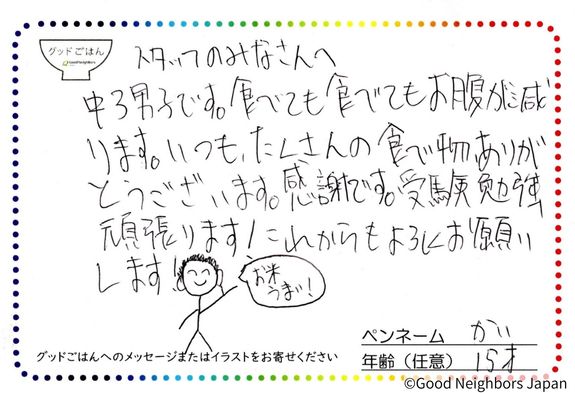 グッドごはん
GoodNeighbors
スタッフのみなさんへ
中3男子です。食べても食べてもお腹が減
ります。いつも、たくさんの食べ物、ありが
とうございます。感謝です。受験勉強
頑張ります！これからもよろしくお願い
します！
お米
うまい！
ペンネーム かい
年齢（任意） 15才
グッドごはんへのメッセージまたはイラストをお寄せください
©Good Neighbors Japan